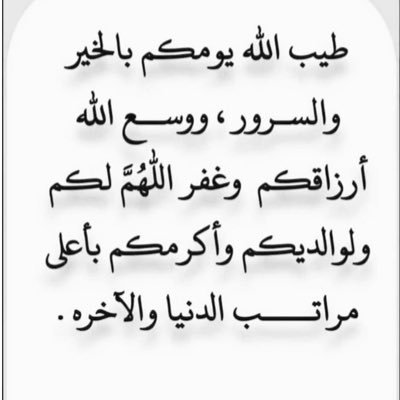 طيب الله يومكم بالخير
والسـرور ، ووسـع الله
أرزاقكم وغفر اللهُمَّ لكم
ولوالديكم وأكرمكم بأعلى
مراتـــب الدنيا والآخره .